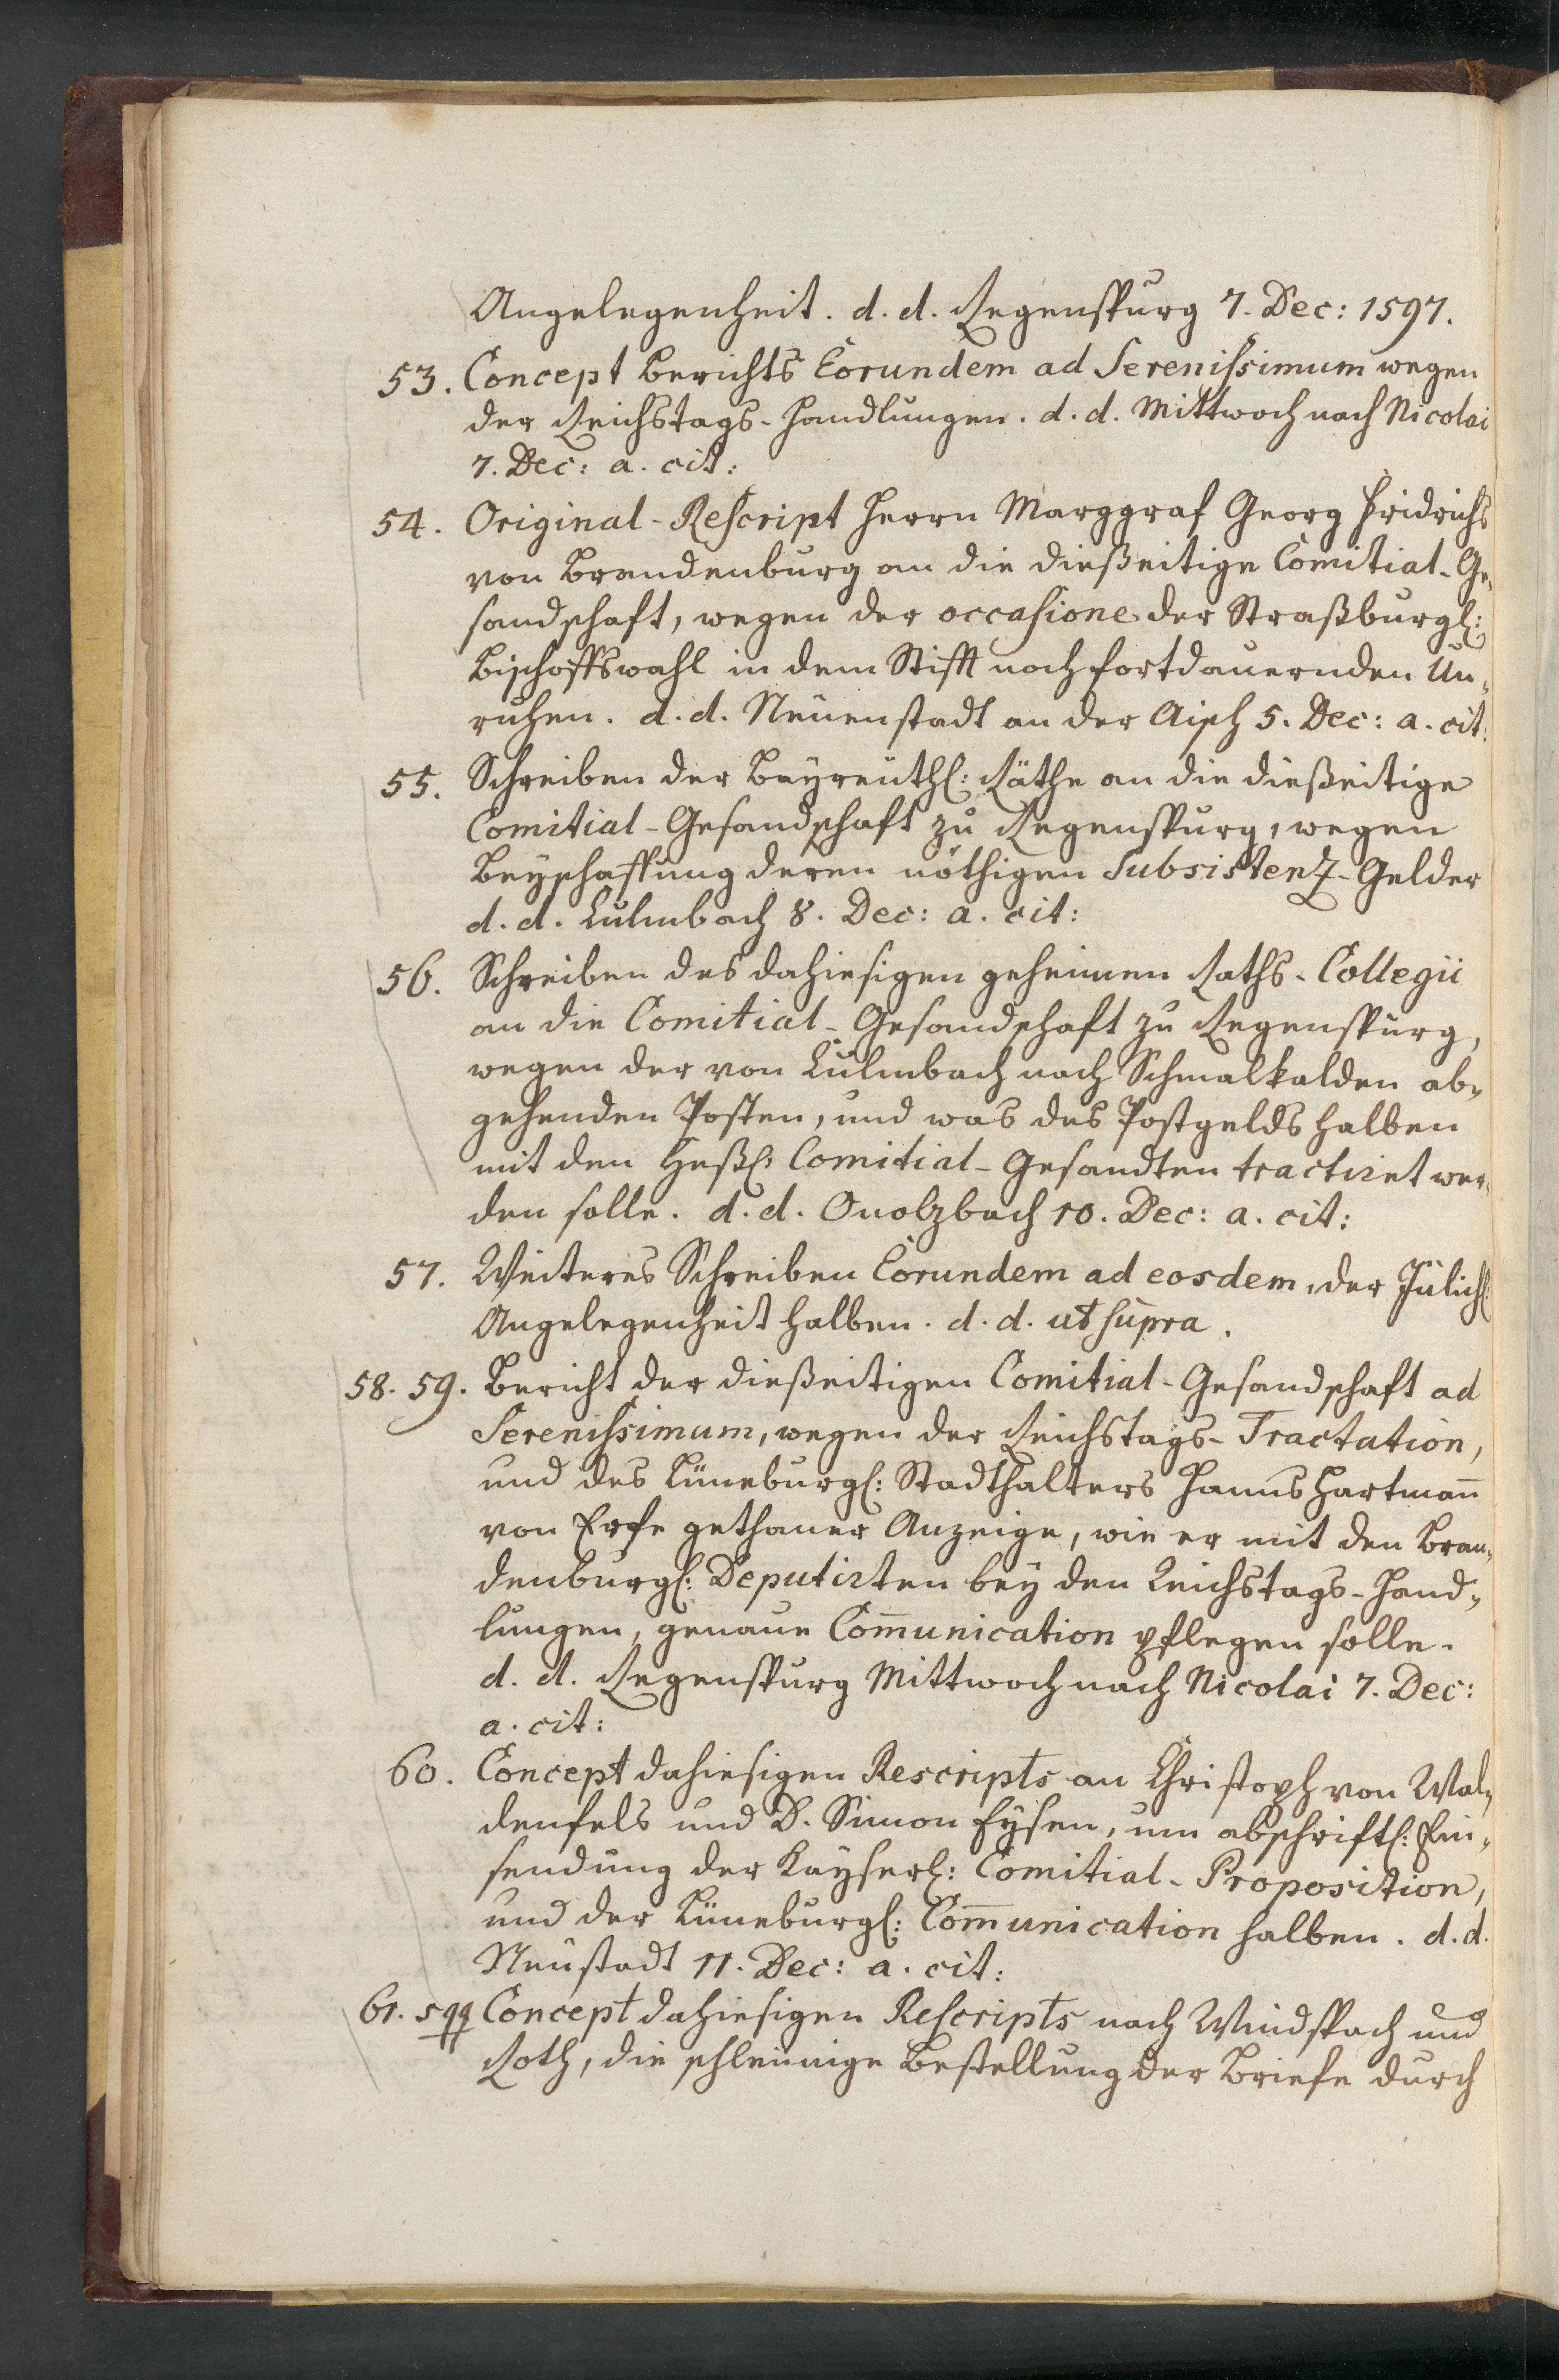 Angelegenheit. d. d. Regenspurg 7. Dec: 1597.
53. Concept Berichts Eorundem ad Serenissimum wegen
der Reichstags-Handlungen. d. d. Mittwoch nach Nicolai
7. Dec: a. cit:
54. Original-Rescript Herrn Marggraf Georg Fridrichs
von Brandenburg an die dießeitige Comitial-Ge-
sandschaft, wegen der occasione der Straßburgl:
Bischoffswahl in dem Stifft noch fortdauernden Un-
ruhen. d. d. Neuenstadt an der Aisch 5. Dec: a. cit:
55. Schreiben der Bayreuthl: Räthe an die dießeitige
Comitial-Gesandschaft zu Regenspurg, wegen
Beyschaffung deren nöthigen Subsistenz-Gelder
d. d. Culmbach 8. Dec: a. cit:
56. Schreiben des dahiesigen geheimen Raths-Collegii
an die Comitial-Gesandschaft zu Regenspurg,
wegen der von Culmbach nach Schmalkalden ab-
gehenden Posten, und was des Postgelds halben
mit den Heßl: Comitial-Gesandten tractiret wer-
den solle. d. d. Onolzbach 10. Dec: a. cit:
57. Weiteres Schreiben Eorundem ad eosdem, der Jülichl:
Angelegenheit halben. d. d. ut supra.
58. 59. Bericht der dießeitigen Comitial-Gesandschaft ad
Serenissimum, wegen der Reichstags-Tractation,
und des Lüneburgl: Stadthalters Hanns Hartmann̄
von Erfe gethaner Anzeige, wie er mit den Bran-
denburgl: Deputirten bey den Reichstags-Hand-
lungen, genaue Com̄unication pflegen solle.
d. d. Regenspurg Mittwoch nach Nicolai 7. Dec:
a. cit:
60. Concept dahiesigen Rescripts an Christoph von Wal-
denfels und D. Simon Eysen, um abschriftl: Ein-
sendung der Kayserl: Comitial-Proposition,
und der Lüneburgl: Com̄unication halben. d. d.
Neustadt 11. Dec: a. cit:
61. sqq Concept dahiesigen Rescripts nach Windspach und
Roth, die schleunige Bestellung der Briefe durch